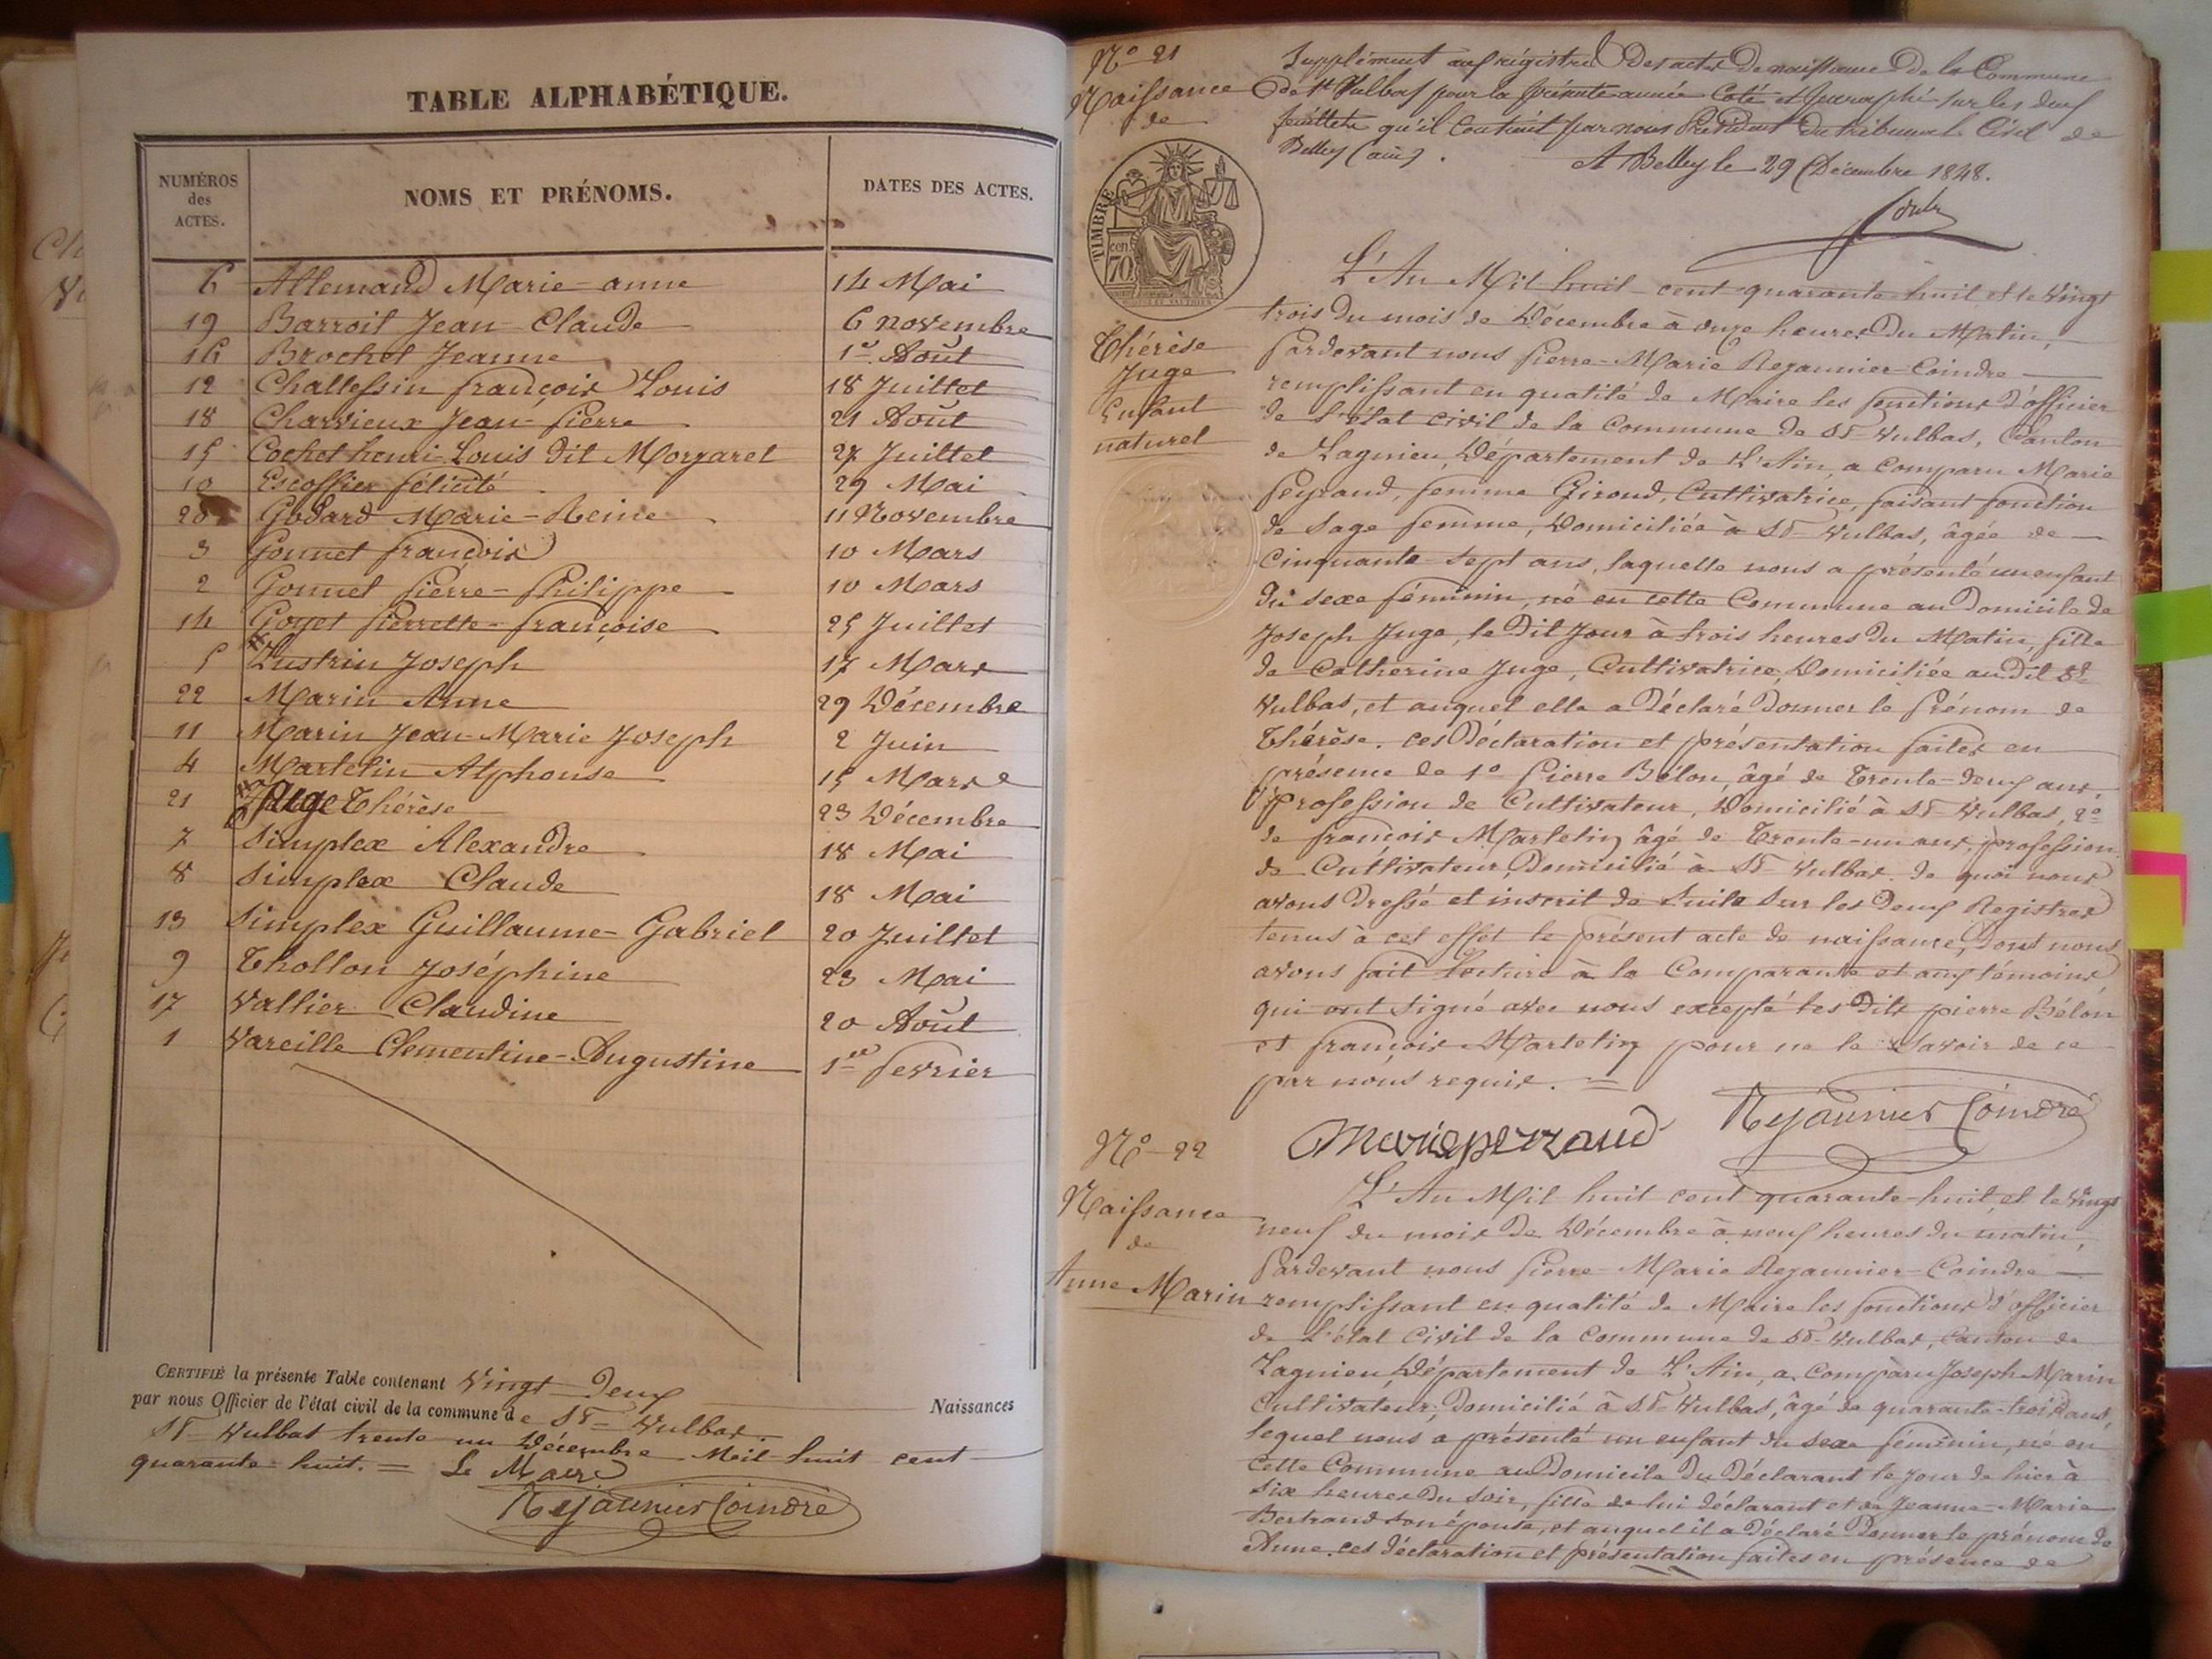 TABLE ALPHABÉTIQUE.
NUMÉROS des ACTES.
NOMS ET PRÉNOMS.
DATES DES ACTES.
6 Allemand Marie-anne 14 Mai
19 Barroil Jean-Claude 6 novembre
16 Brochet Jeanne 1er Août
12 Challessin françois Louis 18 Juillet
18 Charvieux Jean-Pierre 21 Août
15 Cochet henri-Louis dit Morgaret 27 Juillet
10 Escoffier félicité 29 Mai
20 Godard Marie-Reine 11 Novembre
3 Gonnet françois 10 Mars
2 Gonnet Pierre-Philippe 10 Mars
14 Goyet Pierrette-françoise 25 Juillet
5 Lustrin Joseph 17 Mars
22 Marin Anne 29 Décembre
11 Marin Jean-Marie Joseph 2 Juin
4 Martelin Alphonse 15 Mars
21 Juge Thérèse 23 Décembre
7 Simplex Alexandre 18 Mai
8 Simplex Claude 18 Mai
13 Simplex Guillaume-Gabriel 20 Juillet
9 Thollon Joséphine 23 Mai
17 Vallier Claudine 20 Août
1 Vareille Clementine-Augustine 1er fevrier
CERTIFIÉ la présente Table contenant Vingt-Deux Naissances
par nous Officier de l'état civil de la commune de St-Vulbas.
St-Vulbas trente un Décembre Mil-huit cent
quarante-huit. = Le Maire
Rejaunier Coindre
N° 21
Naissance
de
TIMBRE
cen. 70
Thérèse
Juge
Enfant
naturel
Supplément aux régistres des actes de naissance de la Commune
de St Vulbas pour la présente année Coté et paraphé sur les deux
feuillets qu'il Contient par nous Président du tribunal Civil de
Belley (ain).
A Belley le 29 Décembre 1848.
L'An Mil huit cent quarante-huit et le Vingt
trois du mois de Décembre à onze heures du Matin,
Pardevant nous Pierre-Marie Rejaunier-Coindre
remplissant en qualité de Maire les fonctions d'officier
de l'état civil de la Commune de St-Vulbas, Canton
de Lagnieu, Département de L'Ain, a Comparu Marie
Peyraud, femme Giroud, Cultivatrice, faisant fonction
de Sage femme, Domiciliée à St-Vulbas, âgée de
Cinquante-sept ans, laquelle nous a présenté un enfant
du sexe féminin, né en cette Commune au Domicile de
Joseph Juge, le Dit Jour à trois heures du Matin, fille
de Catherine Juge, Cultivatrice, Domiciliée audit St-
Vulbas, et auquel elle a Déclaré Donner le Prénom de
Thérèse. ces Déclaration et présentation faites en
présence de 1° Pierre Bélon, âgé de Trente-deux ans,
profession de Cultivateur, Domicilié à St-Vulbas, 2°
de françois Martelin âgé de Trente-un ans, profession
de Cultivateur, Domicilié à St-Vulbas. de quoi nous
avons Dressé et inscrit de Suite Sur les Deux Registres
tenus à cet effet le présent acte de naissance, Dont nous
avons fait Lecture à la Comparante et aux témoins
qui ont Signé avec nous excepté les Dits pierre Bélon
et françois Martelin pour ne le Savoir de ce
par nous requis. =
Marie perraud Rejaunier Coindre
N° 22
Naissance
de
Anne Marin
L'An Mil huit cent quarante-huit, et le Vingt
neuf du mois de Décembre à neuf heures du matin,
Pardevant nous Pierre-Marie Rejaunier-Coindre
remplissant en qualité de Maire les fonctions d'officier
de l'état Civil de la Commune de St-Vulbas, Canton de
Lagnieu, Département de L'Ain, a Comparu Joseph Marin
Cultivateur, Domicilié à St-Vulbas, âgé de quarante-trois ans,
lequel nous a présenté un enfant du sexe féminin, né en
Cette Commune au Domicile du Déclarant le jour de hier à
Six heures du Soir, fille de lui déclarant et de Jeanne-Marie
Bertrand son épouse, et auquel il a Déclaré Donner le prénom de
Anne. ces déclaration et présentation faites en présence de